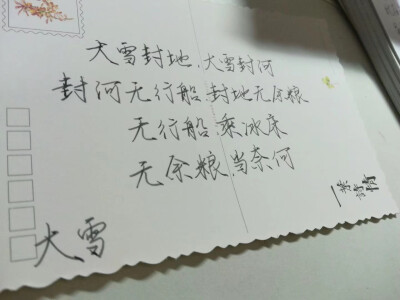 大雪封地.大雪封河
封河无行船.封地无余粮
无行船.乘冰床
无余粮.当奈何
大雪